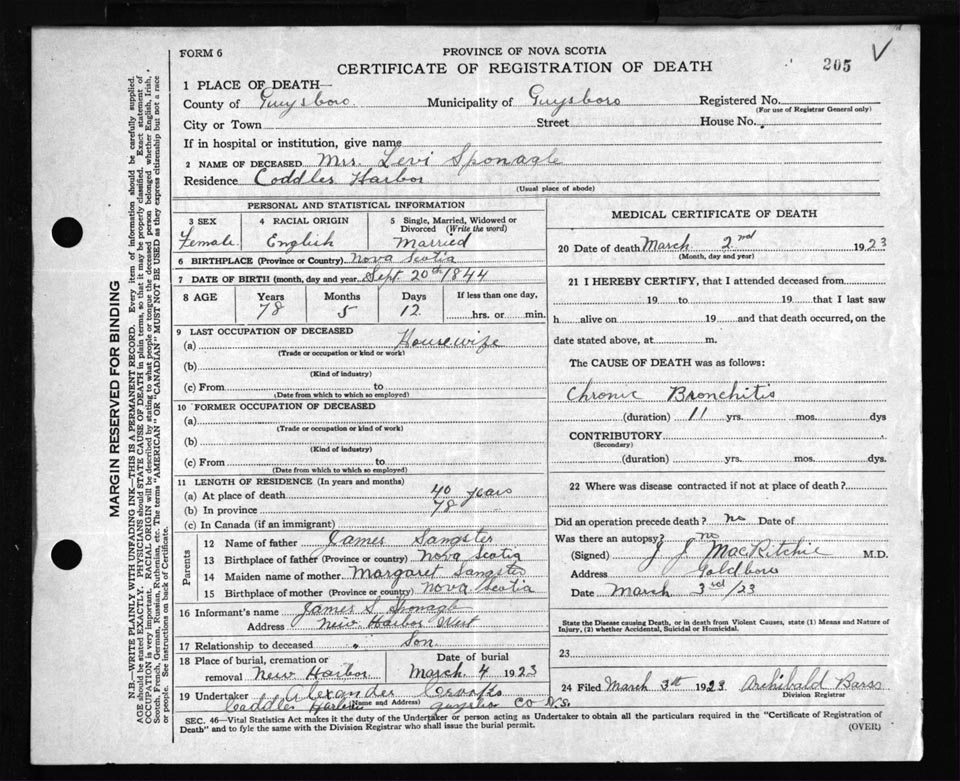 FORM 6
PROVINCE OF NOVA SCOTIA
CERTIFICATE OF REGISTRATION OF DEATH
205
1 PLACE OF DEATH—
County of Guysboro Municipality of Guysboro Registered No.
(For use of Registrar General only)
City or Town Street House No.
If in hospital or institution, give name
2 NAME OF DECEASED Mrs. Levi Sponagle
Residence Coddles Harbor
(Usual place of abode)
PERSONAL AND STATISTICAL INFORMATION
3 SEX 4 RACIAL ORIGIN 5 Single, Married, Widowed or
Divorced (Write the word)
Female English Married
6 BIRTHPLACE (Province or Country) Nova Scotia
7 DATE OF BIRTH (month, day and year) Sept 20th 1844
8 AGE Years Months Days If less than one day,
78 5 12 hrs. or min.
9 LAST OCCUPATION OF DECEASED
(a) Housewife
(Trade or occupation or kind of work)
(b)
(Kind of industry)
(c) From to
(Date from which to which so employed)
10 FORMER OCCUPATION OF DECEASED
(a)
(Trade or occupation or kind of work)
(b)
(Kind of industry)
(c) From to
(Date from which to which so employed)
11 LENGTH OF RESIDENCE (In years and months)
(a) At place of death 40 years
(b) In province 78 "
(c) In Canada (if an immigrant)
Parents
12 Name of father James Sangster
13 Birthplace of father (Province or country) Nova Scotia
14 Maiden name of mother Margaret Sangster
15 Birthplace of mother (Province or country) Nova Scotia
16 Informant's name James S. Sponagle
Address New Harbor West
17 Relationship to deceased Son.
18 Place of burial, cremation or Date of burial
removal New Harbor March 4 1923
19 Undertaker Alexander Crooks
(Name and Address)
Coddles Harbor Guysboro Co N.S.
MEDICAL CERTIFICATE OF DEATH
20 Date of death March 2nd 1923
(Month, day and year)
21 I HEREBY CERTIFY, that I attended deceased from
19 to 19 that I last saw
h alive on 19 and that death occurred, on the
date stated above, at m.
The CAUSE OF DEATH was as follows:
Chronic Bronchitis
(duration) 11 yrs. mos. dys
CONTRIBUTORY
(Secondary)
(duration) yrs. mos. dys.
22 Where was disease contracted if not at place of death?
Did an operation precede death? no Date of
Was there an autopsy? no
(Signed) J J MacRitchie M.D.
Address Goldboro
Date March 3rd/23
State the Disease causing Death, or in death from Violent Causes, state (1) Means and Nature of
Injury, (2) whether Accidental, Suicidal or Homicidal.
23
24 Filed March 3th 1923 Archibald Barss
Division Registrar
SEC. 46—Vital Statistics Act makes it the duty of the Undertaker or person acting as Undertaker to obtain all the particulars required in the "Certificate of Registration of
Death" and to fyle the same with the Division Registrar who shall issue the burial permit.
(OVER)
MARGIN RESERVED FOR BINDING
N.B.—WRITE PLAINLY WITH UNFADING INK—THIS IS A PERMANENT RECORD. Every item of information should be carefully supplied.
AGE should be stated EXACTLY. PHYSICIANS should STATE CAUSE OF DEATH in plain terms, so that it may be properly classified. Exact statement of
OCCUPATION is very important. RACIAL ORIGIN will be described by stating to what people or tongue the deceased person belonged whether English, Irish,
Scotch, French, German, Russian, Ruthenian, etc. The terms "AMERICAN" or "CANADIAN" MUST NOT BE USED as they express citizenship but not a race
or people. See instructions on back of Certificate.